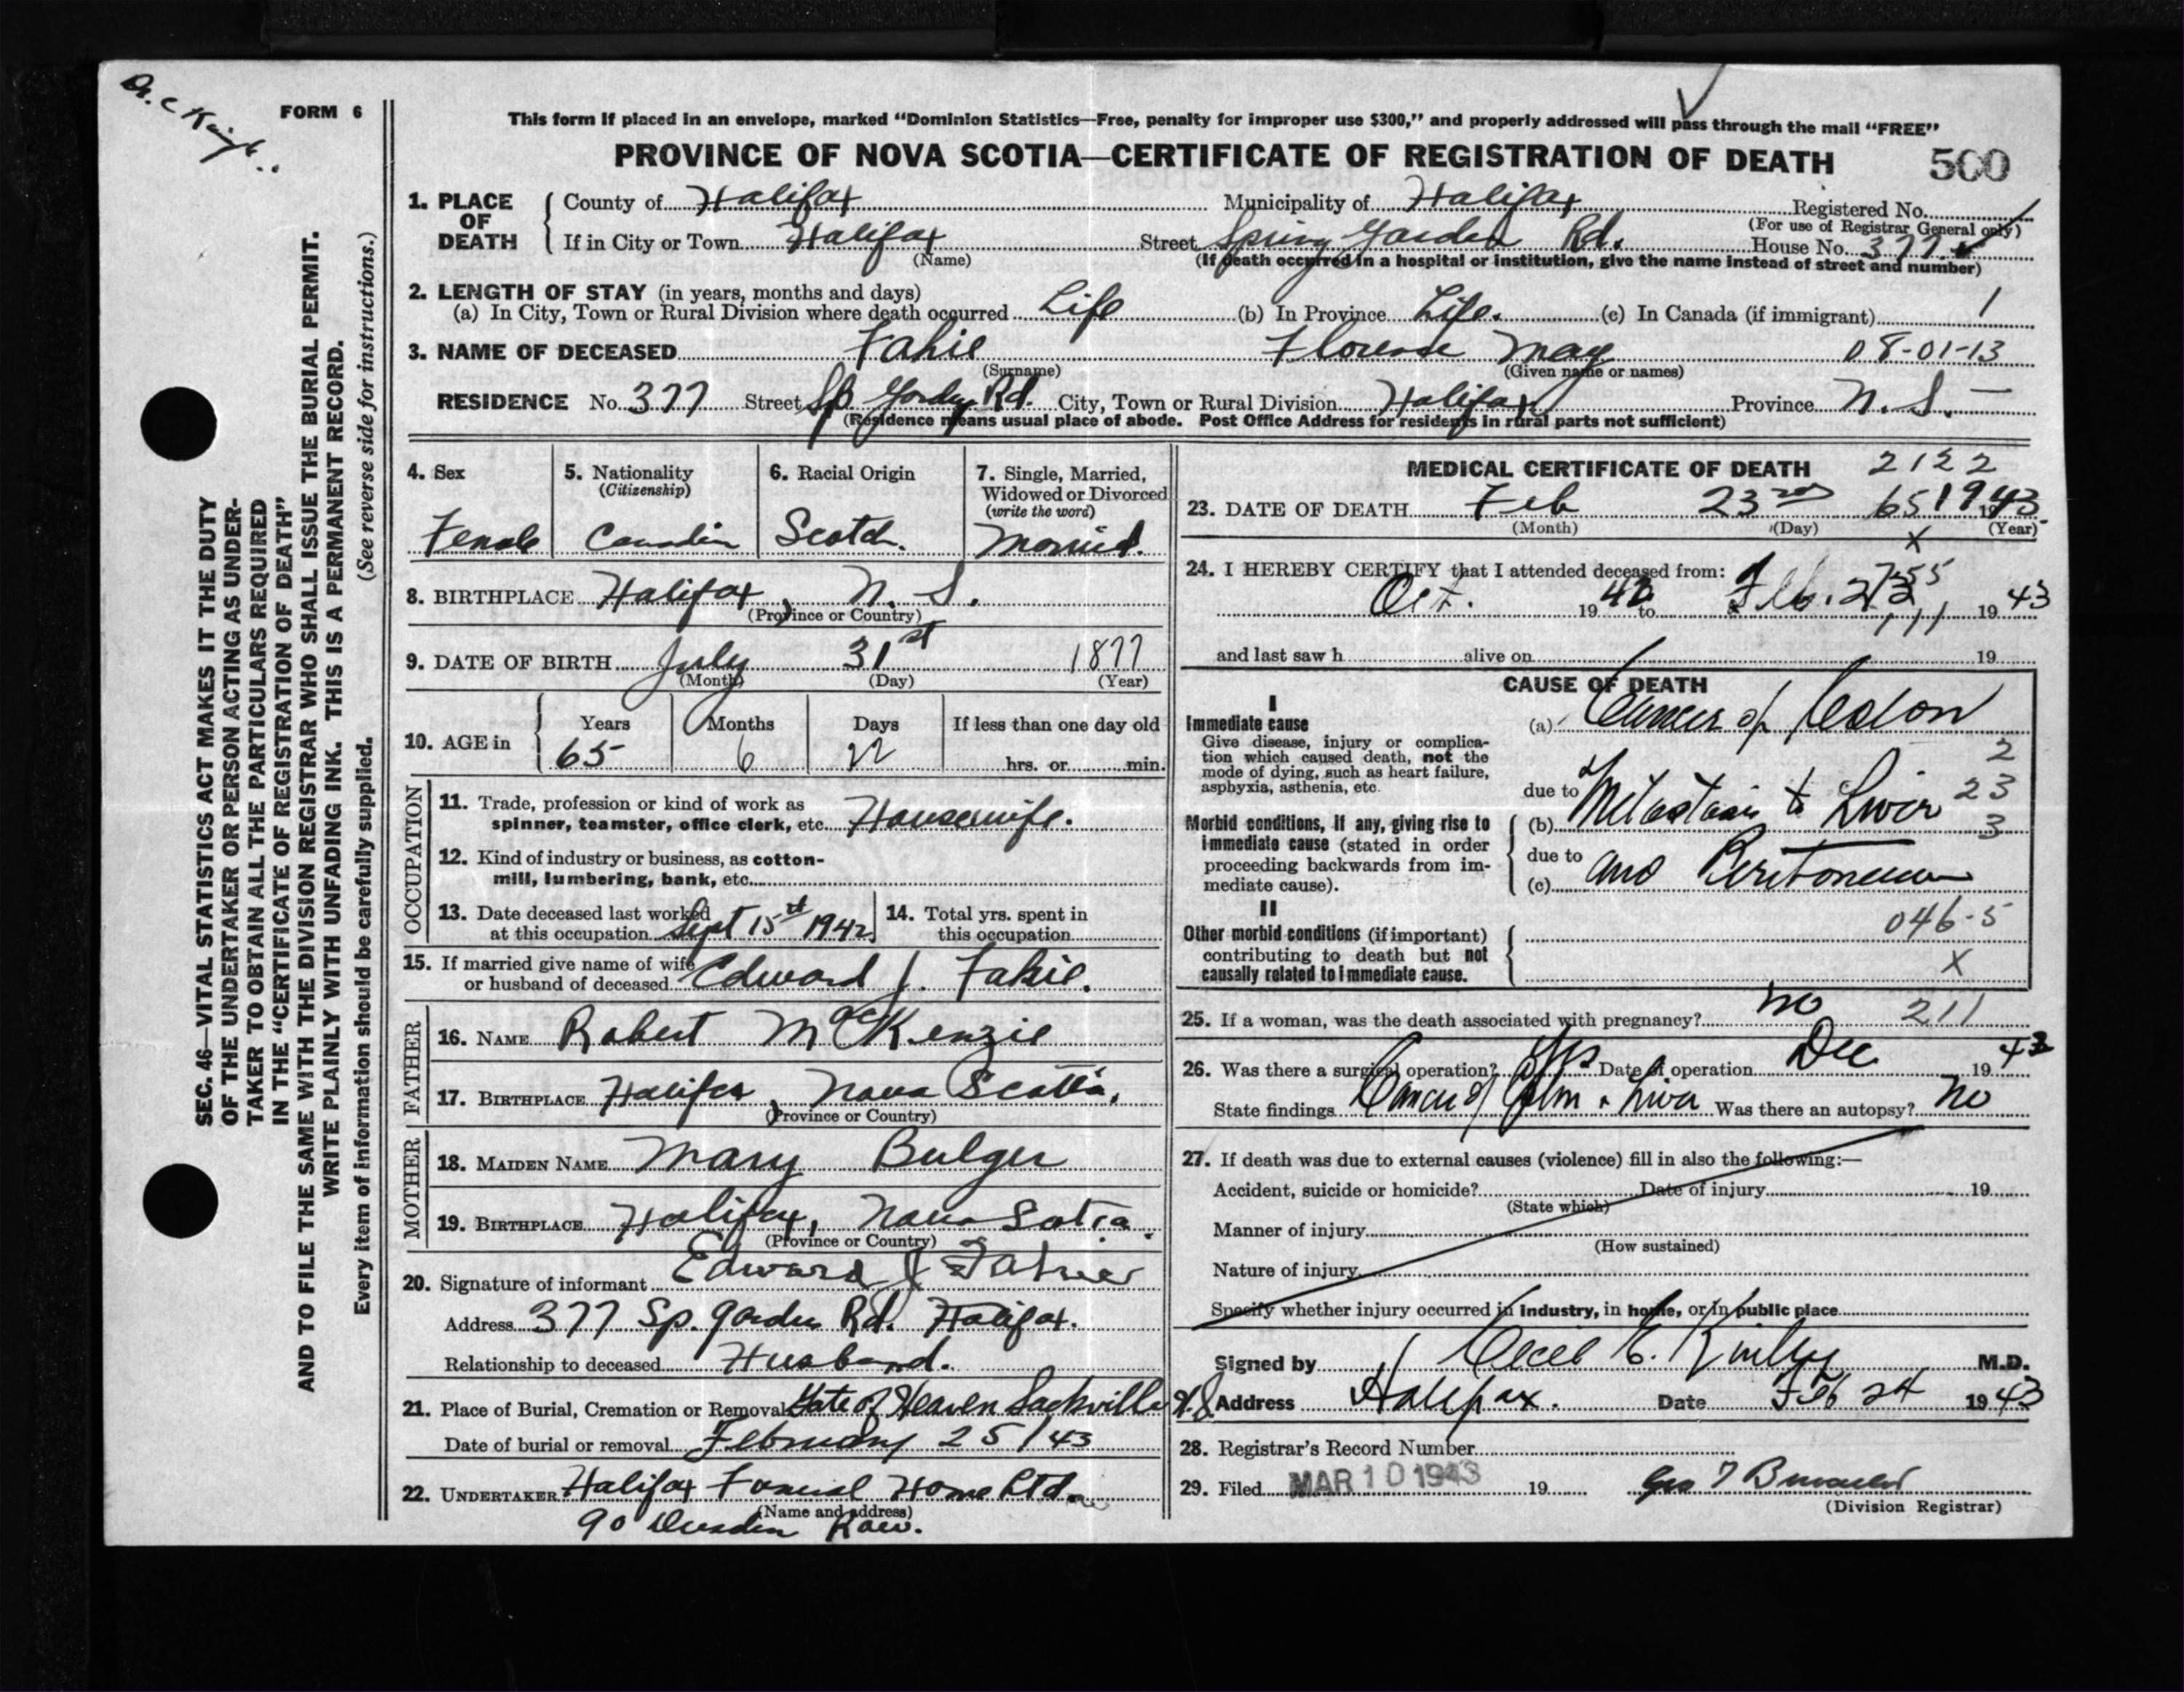 FORM 6
This form if placed in an envelope, marked "Dominion Statistics—Free, penalty for improper use $300," and properly addressed will pass through the mail "FREE"
PROVINCE OF NOVA SCOTIA—CERTIFICATE OF REGISTRATION OF DEATH 500
SEC. 46—VITAL STATISTICS ACT MAKES IT THE DUTY
OF THE UNDERTAKER OR PERSON ACTING AS UNDER-
TAKER TO OBTAIN ALL THE PARTICULARS REQUIRED
IN THE "CERTIFICATE OF REGISTRATION OF DEATH"
AND TO FILE THE SAME WITH THE DIVISION REGISTRAR WHO SHALL ISSUE THE BURIAL PERMIT.
WRITE PLAINLY WITH UNFADING INK. THIS IS A PERMANENT RECORD.
Every item of information should be carefully supplied. (See reverse side for instructions.)
1. PLACE OF DEATH
County of Halifax Municipality of Halifax Registered No.
(For use of Registrar General only)
If in City or Town Halifax Street Spring Garden Rd. House No. 377
(Name) (If death occurred in a hospital or institution, give the name instead of street and number)
2. LENGTH OF STAY (in years, months and days)
(a) In City, Town or Rural Division where death occurred Life (b) In Province Life. (c) In Canada (if immigrant) 1
3. NAME OF DECEASED Fahie Florence May 08-01-13
(Surname) (Given name or names)
RESIDENCE No. 377 Street Sp Garden Rd. City, Town or Rural Division Halifax Province N.S.
(Residence means usual place of abode. Post Office Address for residents in rural parts not sufficient)
4. Sex
Female
5. Nationality
(Citizenship)
Canadin
6. Racial Origin
Scotch.
7. Single, Married,
Widowed or Divorced
(write the word)
Married.
8. BIRTHPLACE Halifax, N. S.
(Province or Country)
9. DATE OF BIRTH July 31st 1877
(Month) (Day) (Year)
10. AGE in Years Months Days If less than one day old
65 6 22 hrs. or min.
OCCUPATION
11. Trade, profession or kind of work as
spinner, teamster, office clerk, etc. Housewife.
12. Kind of industry or business, as cotton-
mill, lumbering, bank, etc.
13. Date deceased last worked
at this occupation Sept 15th 1942
14. Total yrs. spent in
this occupation
15. If married give name of wife
or husband of deceased Edward J. Fahie.
FATHER
16. NAME Robert MacKenzie
17. BIRTHPLACE Halifax, Nova Scotia.
(Province or Country)
MOTHER
18. MAIDEN NAME Mary Bulger
19. BIRTHPLACE Halifax, Nova Scotia.
(Province or Country)
20. Signature of informant Edward J Fahie
Address 377 Sp. Garden Rd. Halifax.
Relationship to deceased Husband.
21. Place of Burial, Cremation or Removal Gate of Heaven Sackville N.S.
Date of burial or removal February 25/43
22. UNDERTAKER Halifax Funeral Home Ltd.
(Name and address)
90 Dresden Row.
MEDICAL CERTIFICATE OF DEATH 2122
23. DATE OF DEATH Feb 23rd 65 1943
(Month) (Day) (Year)
x
24. I HEREBY CERTIFY that I attended deceased from:
Oct. 1942 to Feb. 23 1943
and last saw h alive on 19
CAUSE OF DEATH
I
Immediate cause
Give disease, injury or complica-
tion which caused death, not the
mode of dying, such as heart failure,
asphyxia, asthenia, etc.
(a) Cancer of Colon
2
due to 23
Morbid conditions, if any, giving rise to
immediate cause (stated in order
proceeding backwards from im-
mediate cause).
(b) Metastasis to Liver 3
due to
(c) and Peritoneum
II
Other morbid conditions (if important)
contributing to death but not
causally related to immediate cause.
046-5
X
25. If a woman, was the death associated with pregnancy? no 211
26. Was there a surgical operation? Yes Date of operation Dec 1942
State findings Cancer of Colon & Liver Was there an autopsy? No
27. If death was due to external causes (violence) fill in also the following:—
Accident, suicide or homicide? Date of injury 19
(State which)
Manner of injury
(How sustained)
Nature of injury
Specify whether injury occurred in industry, in home, or in public place
Signed by Cecil E. Kinley M.D.
Address Halifax. Date Feb 24 1943
28. Registrar's Record Number
29. Filed MAR 10 1943 19
(Division Registrar)